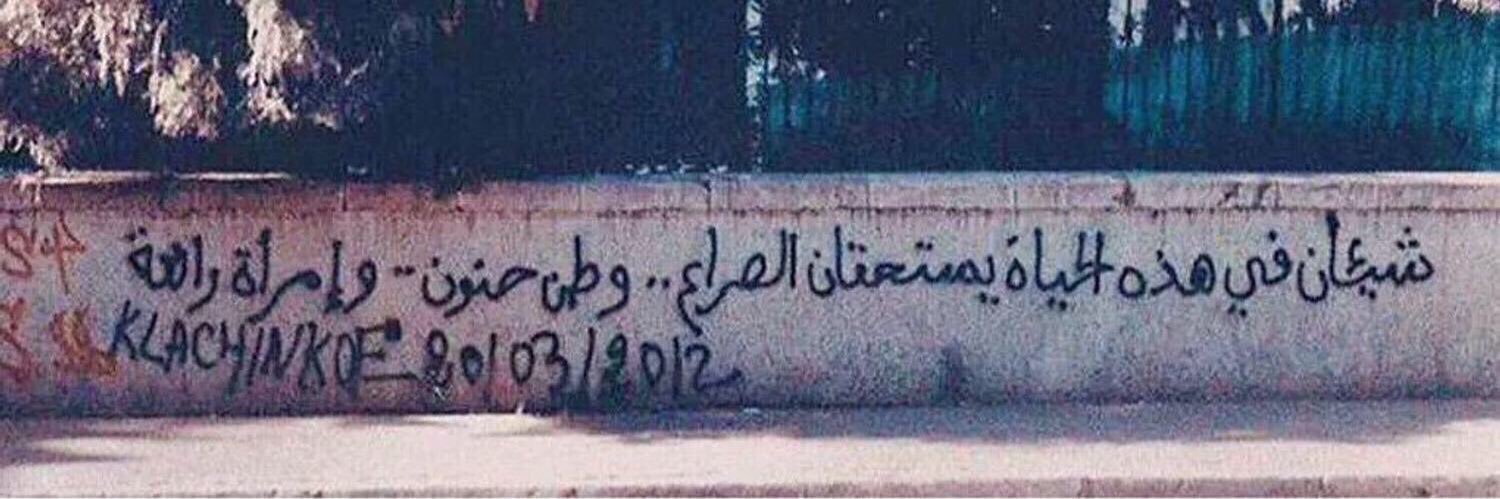 شيئان في هذه الحياة يستحقان الصراع .. وطن حنون .. و إمرأة رائعة
KLACHINKOE 20/03/2012